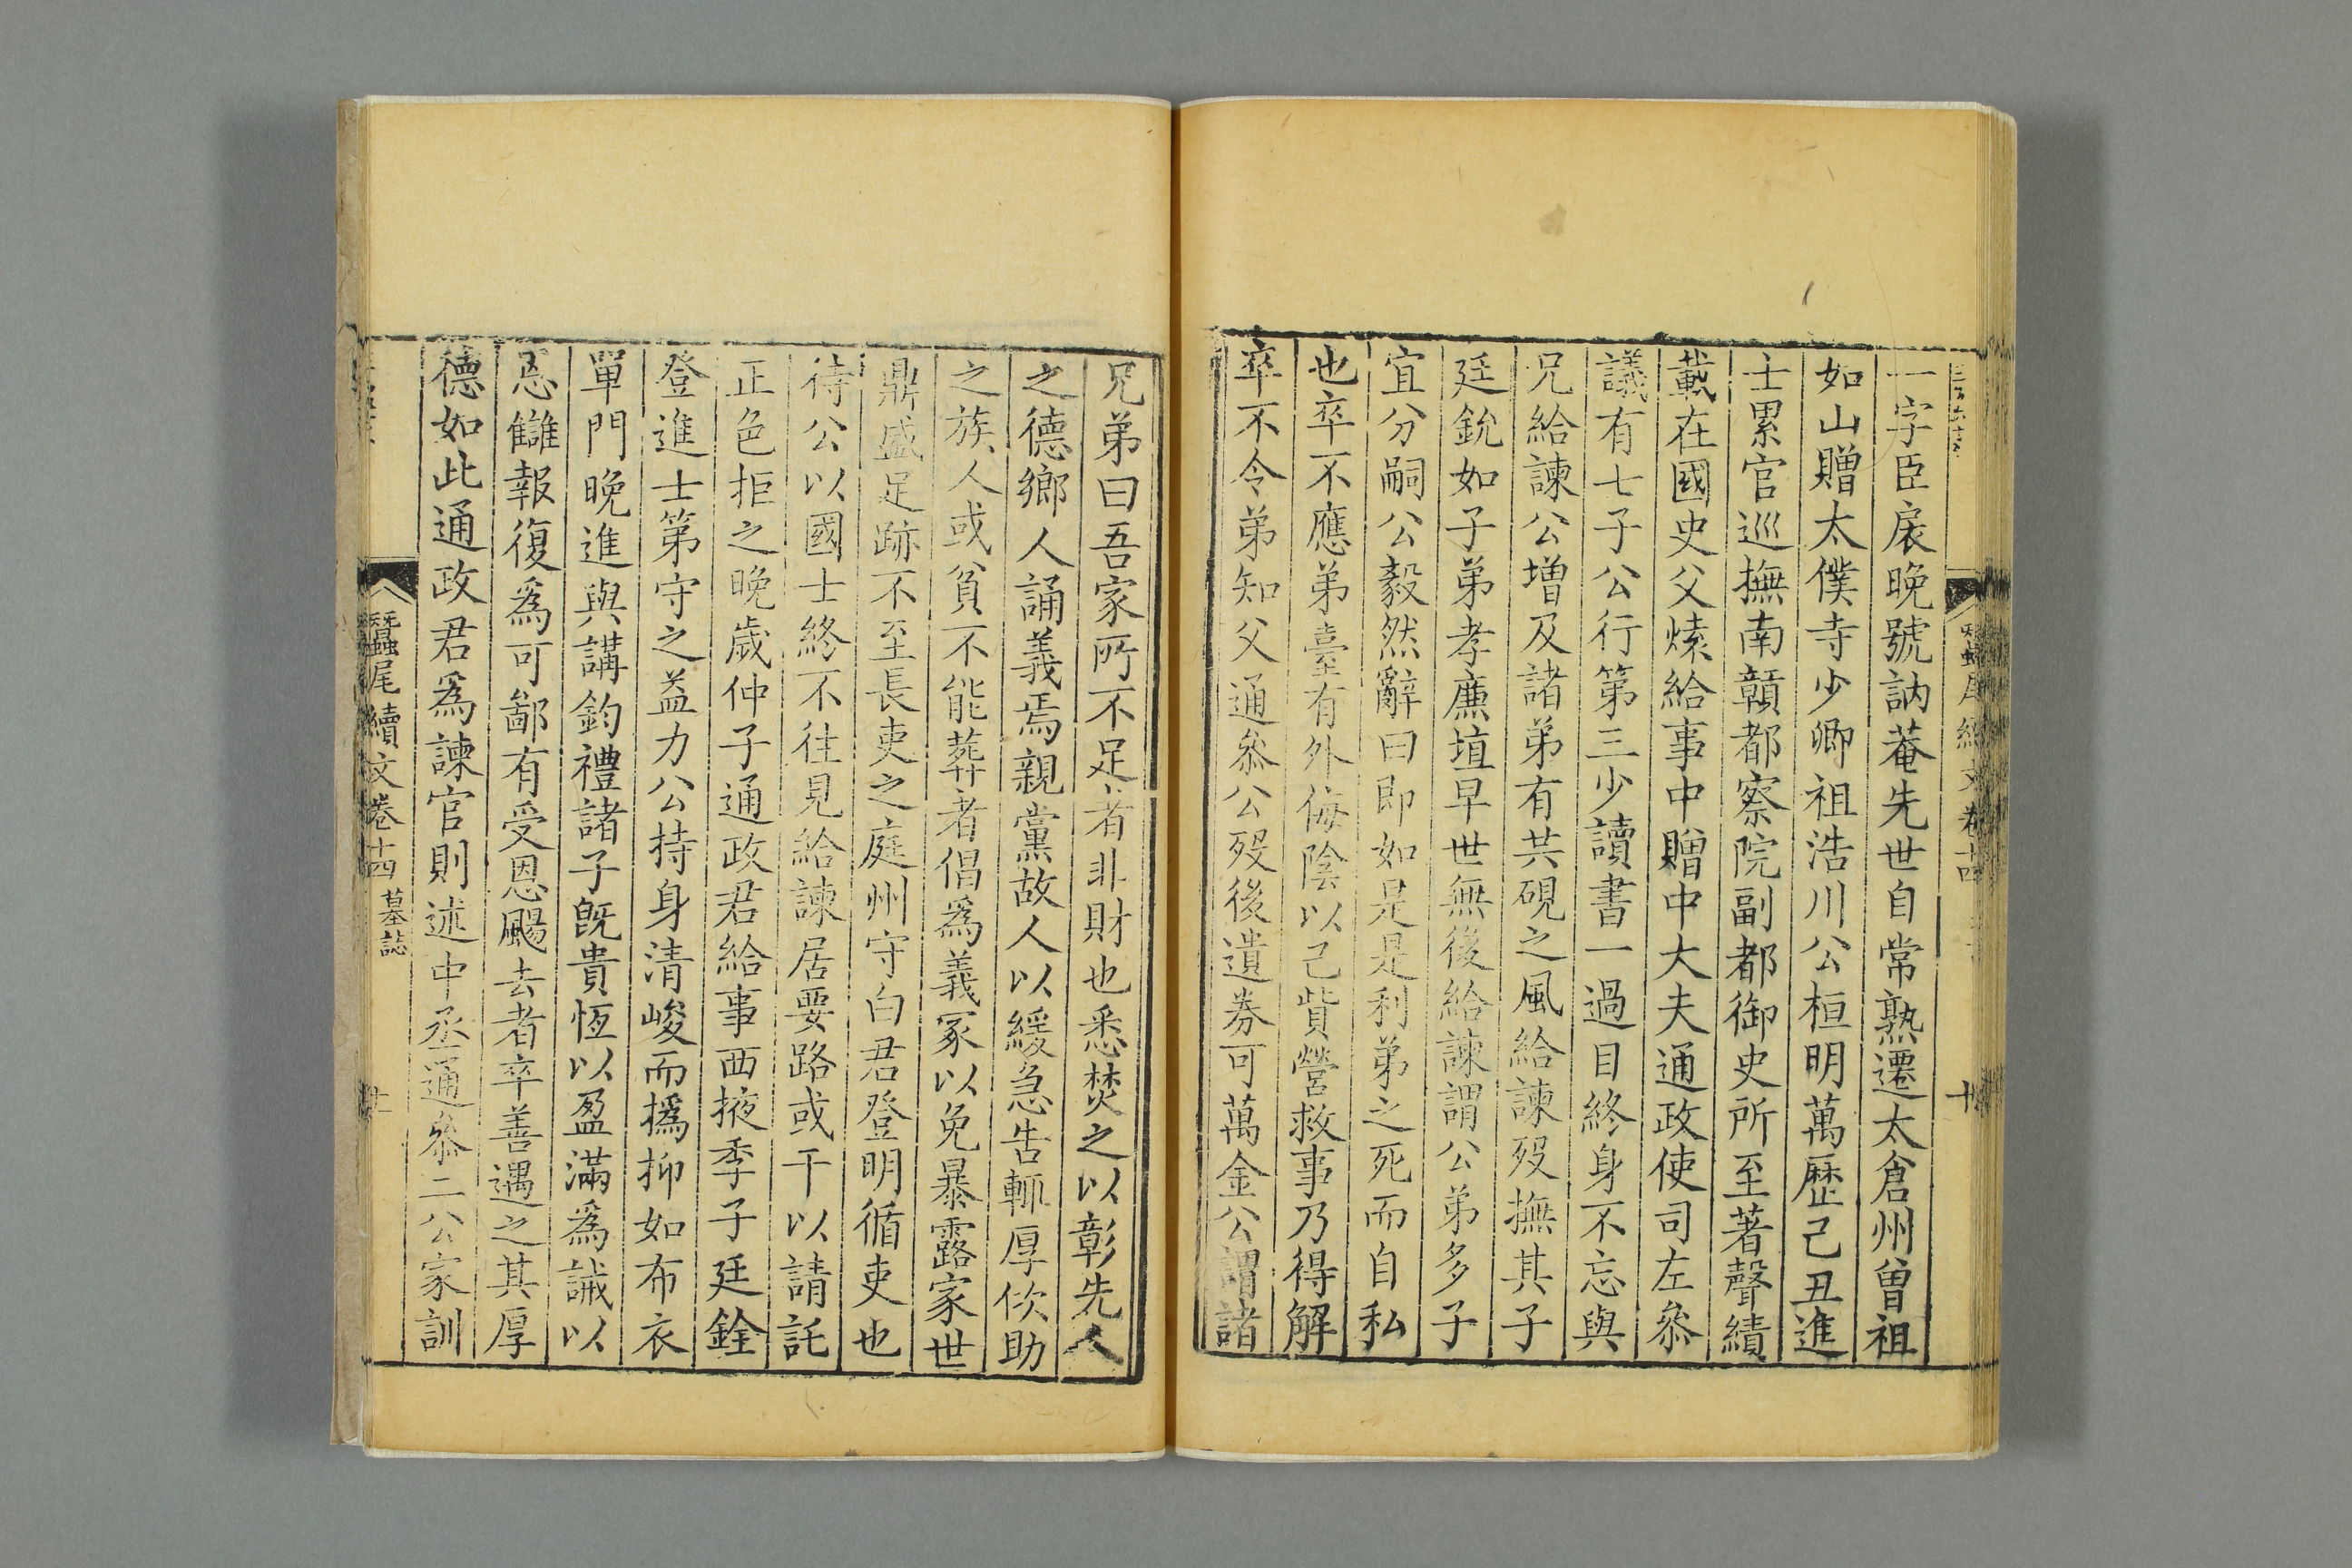 一字臣扆晚號訥菴先世自常熟遷太倉州曾祖
如山贈太僕寺少卿祖浩川公桓明萬歷己丑進
士累官巡撫南贛都察院副都御史所至著聲績
載在國史父燧給事中贈中大夫通政使司左叅
議有七子公行第三少讀書一過目終身不忘與
兄給諫公增及諸弟有共硯之風給諫歿撫其子
廷銳如子弟孝廉埴早世無後給諫謂公弟多子
宜分嗣公毅然辭曰即如是是利弟之死而自私
也卒不應弟臺有外侮陰以己貲營救事乃得解
卒不令弟知父通叅公歿後遺券可萬金公謂諸
兄弟曰吾家所不足者非財也悉焚之以彰先人
之德鄉人誦義焉親黨故人以緩急告輒厚佽助
之族人或貧不能葬者倡為義冢以免暴露家世
鼎盛足跡不至長吏之庭州守白君登明循吏也
待公以國士終不往見給諫居要路或干以請託
正色拒之晚歲仲子通政君給事西掖季子廷銓
登進士第守之益力公持身清峻而撝抑如布衣
單門晚進與講鈞禮諸子旣貴恆以盈滿為誡以
恩讎報復為可鄙有受恩颺去者卒善遇之其厚
德如此通政君為諫官則述中丞通叅二公家訓
蠶尾續文卷十四 墓誌